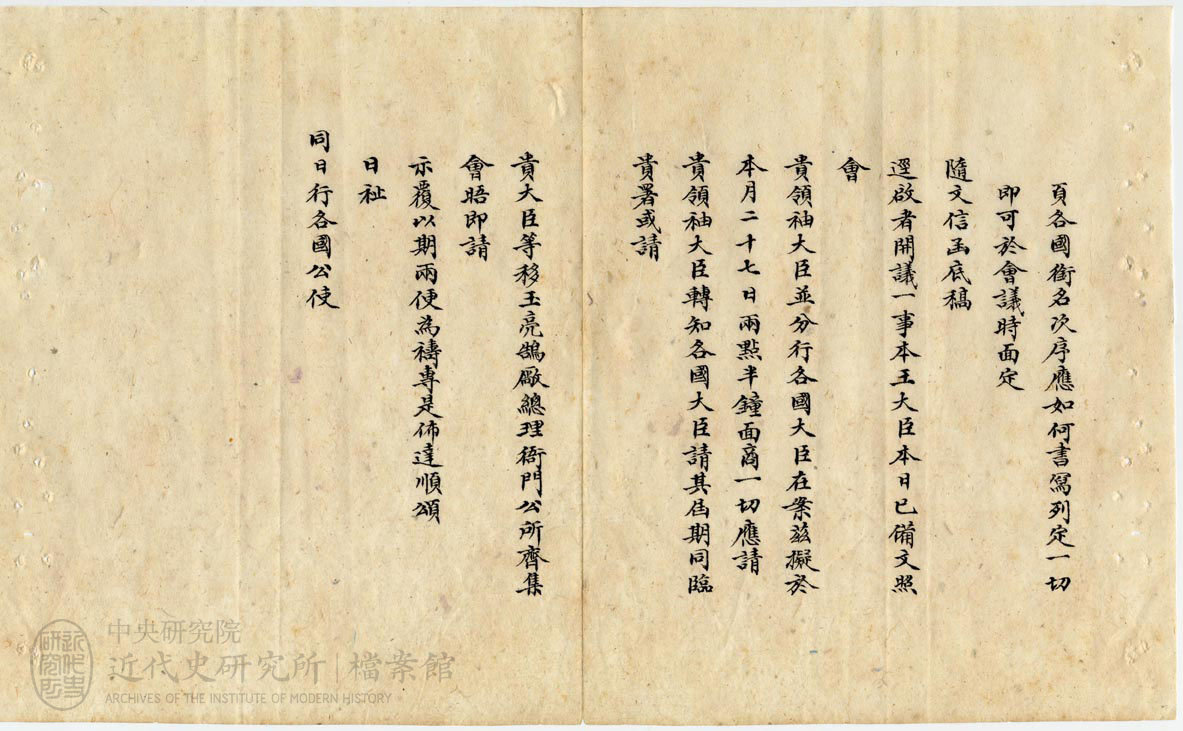 頁各國銜名次序應如何書寫列定一切
即可於會議時面定
隨文信函底稿
逕啟者開議一事本王大臣本日已備文照
會
貴領袖大臣並分行各國大臣在案茲擬於
本月二十七日兩點半鐘面商一切應請
貴領袖大臣轉知各國大臣請其屆期同臨
貴署或請
貴大臣等移玉亮鵠厰總理衙門公所齊集
會晤即請
示覆以期兩便為禱專是佈達順頌
日祉
同日行各國公使
中央研究院
近代史研究所 | 檔案館
ARCHIVES OF THE INSTITUTE OF MODERN HISTORY